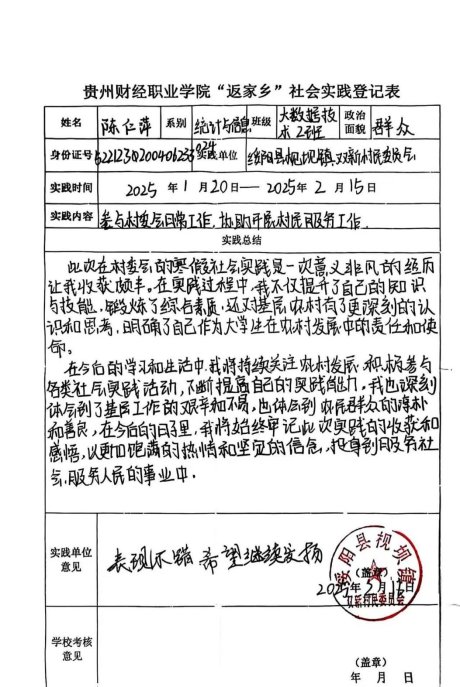 贵州财经职业学院“返家乡”社会实践登记表
姓名 陈仁萍 系别 统计与信息 班级 大数据技术2班 政治面貌 群众
身份证号 实践单位 绥阳县枧坝镇双新村民委员会
实践时间 2025年1月20日——2025年2月15日
实践内容 参与村委会日常工作,协助开展村民服务工作.
实践总结
此次在村委会的寒假社会实践是一次意义非凡的经历
让我收获颇丰。在实践过程中,我不仅提升了自己的知识
与技能,锻炼了综合素质,还对基层农村有了更深刻的认
识和思考,明确了自己作为大学生在农村发展中的责任和使
命。
在今后的学习和生活中,我将持续关注农村发展,积极参与
各类社会实践活动,不断提高自己的实践能力,我也深刻
体会到了基层工作的艰辛和不易,也体会到农民群众的淳朴
和善良,在今后的日子里,我将始终牢记此次实践的收获和
感悟,以更加饱满的热情和坚定的信念,投身到服务社
会,服务人民的事业中.
实践单位意见
表现不错 希望继续发扬
绥阳县枧坝镇
双新村民委员会
(盖章)
2025年 月 日
学校考核意见
(盖章)
年 月 日